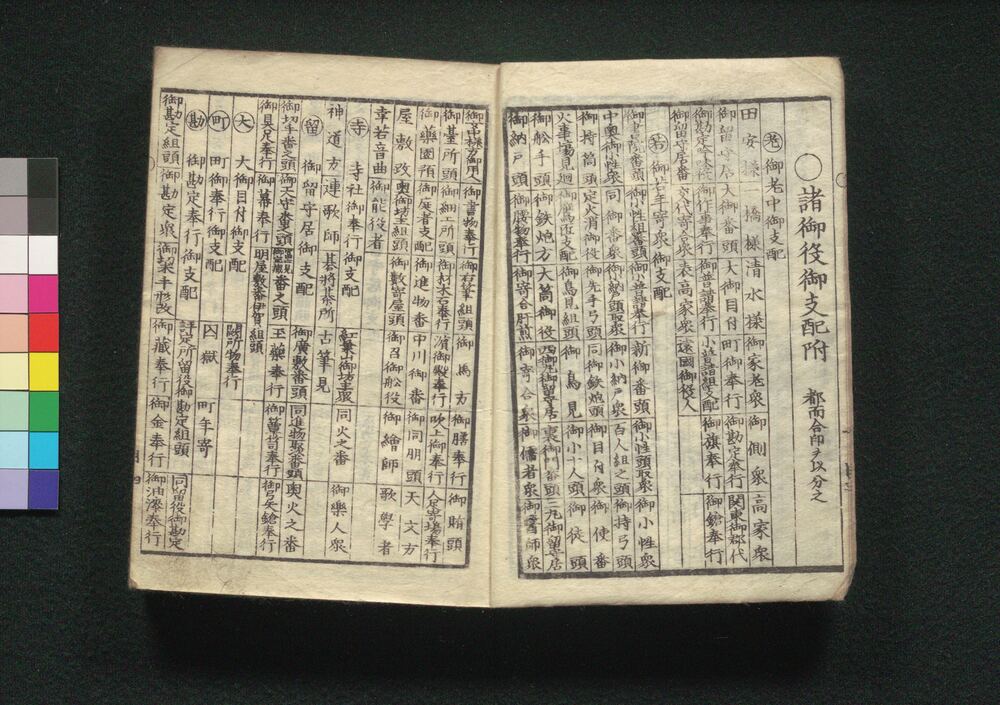 ○諸御役御支配附 都而合印ヲ以分之
老 御老中御支配
田安様 一橋様 清水様 御家老衆 御側衆 高家衆
御留守居 大御番頭 大御目付 町御奉行 御勘定奉行 関東御郡代
御勘定吟味役 御作事奉行 御普請奉行 小普請組支配 御旗奉行 御鎗奉行
御留守居番 交代寄合衆 表高家衆 遠国御役人
若 御若年寄衆御支配
御書院番頭 御小性組番頭 御普請奉行 新御番頭 御小性頭取衆 御小性衆
中奥御小性衆 同御番衆 御小納戸頭取衆 御小納戸衆 百人組之頭 御持弓頭
御持筒頭 定火消御役 御先手弓頭 同御鉄炮頭 御目付衆 御使番
火事場見廻 御鷹匠支配 御鳥見組頭 御鳥見 御小十人頭 御徒頭
御舩手頭 御鉄炮方 大筒御役 西御丸御留守居 裏御門番頭 二丸御留守居
御納戸頭 御腰物奉行 御寄合肝煎 御寄合衆 御儒者衆 御医師衆
御書物奉行 御右筆組頭 御馬方 御膳奉行 御賄頭
御臺所頭 御細工所頭 御材木石奉行 濱御殿奉行 吹上御奉行 人足寄場奉行
御藥園預 御庭者支配 御進物番 中川御番 御同朋頭 天文方
屋敷改 奥御坊主組頭 御數寄屋頭 御召御舩役 御繪師 歌學者
幸若音曲 御能役者
寺 寺社御奉行御支配
神道方 連歌師 碁將棊所 古筆見 御樂人衆
紅葉山御坊主衆 同火之番
留 御留守居御支配
御切手番之頭 御天守番之頭 番之頭 御廣敷番頭 同進物取次番頭 奥火之番
御具足奉行 御幕奉行 明屋敷番伊賀組頭 御藥奉行 御簞笥奉行 御弓矢鎗奉行
大 大御目付御支配
闕所物奉行
町 町御奉行御支配
囚獄 町年寄
勘 御勘定奉行御支配
評定所留役御勘定組頭 同留役御勘定
御勘定組頭 御勘定衆 御切米手形改 御藏奉行 御金奉行 御油漆奉行